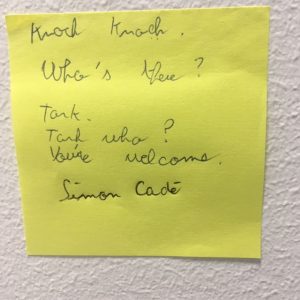 Knock Knock.
Who's there?
Tank.
Tank who?
You're welcome.
Simon Cadé